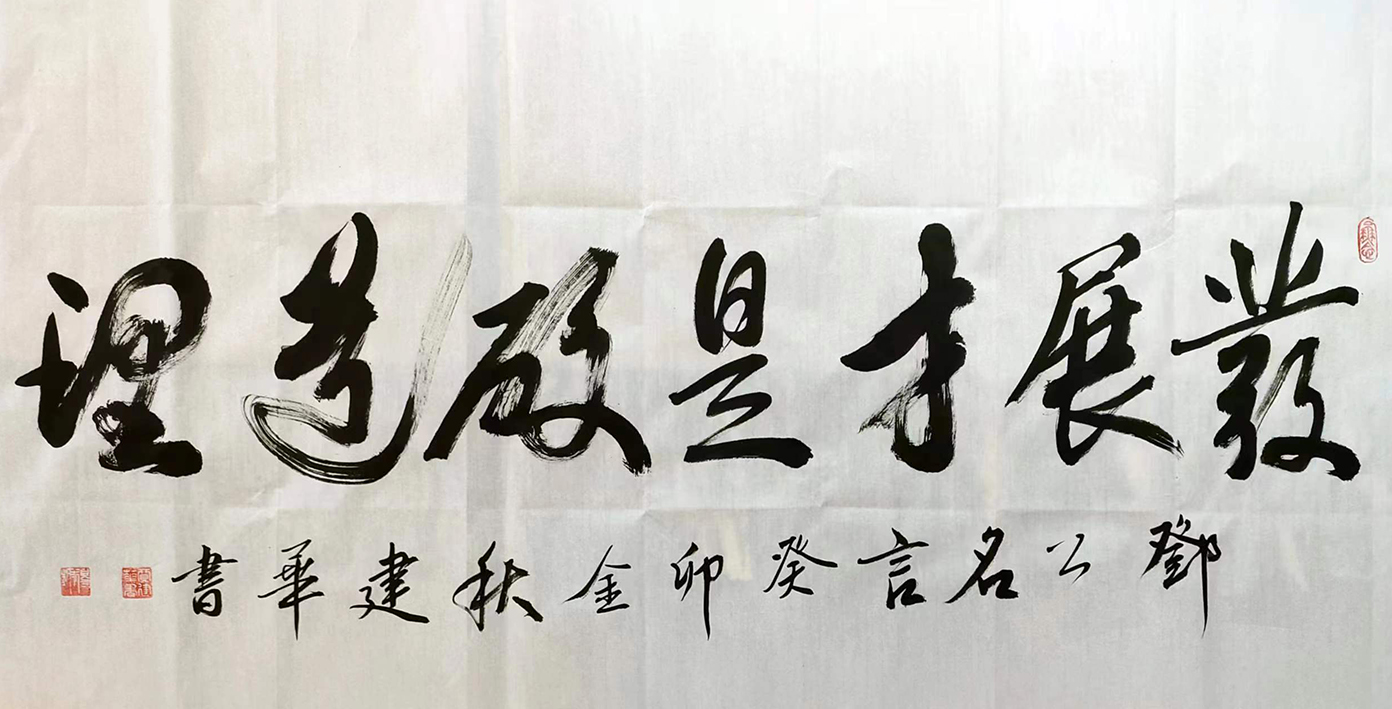 發展才是硬道理
鄧公名言癸卯金秋建華書